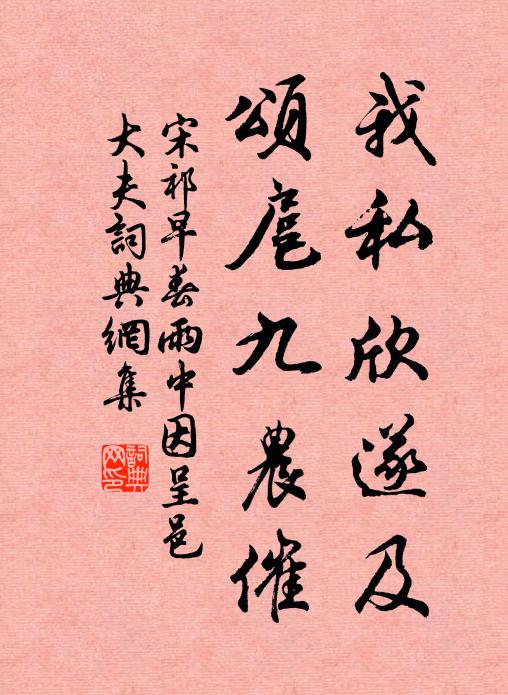 我私欣遂及
頌扈九農催
宋祁早春雨中因呈邑
大夫詞典網集
詞典
网印